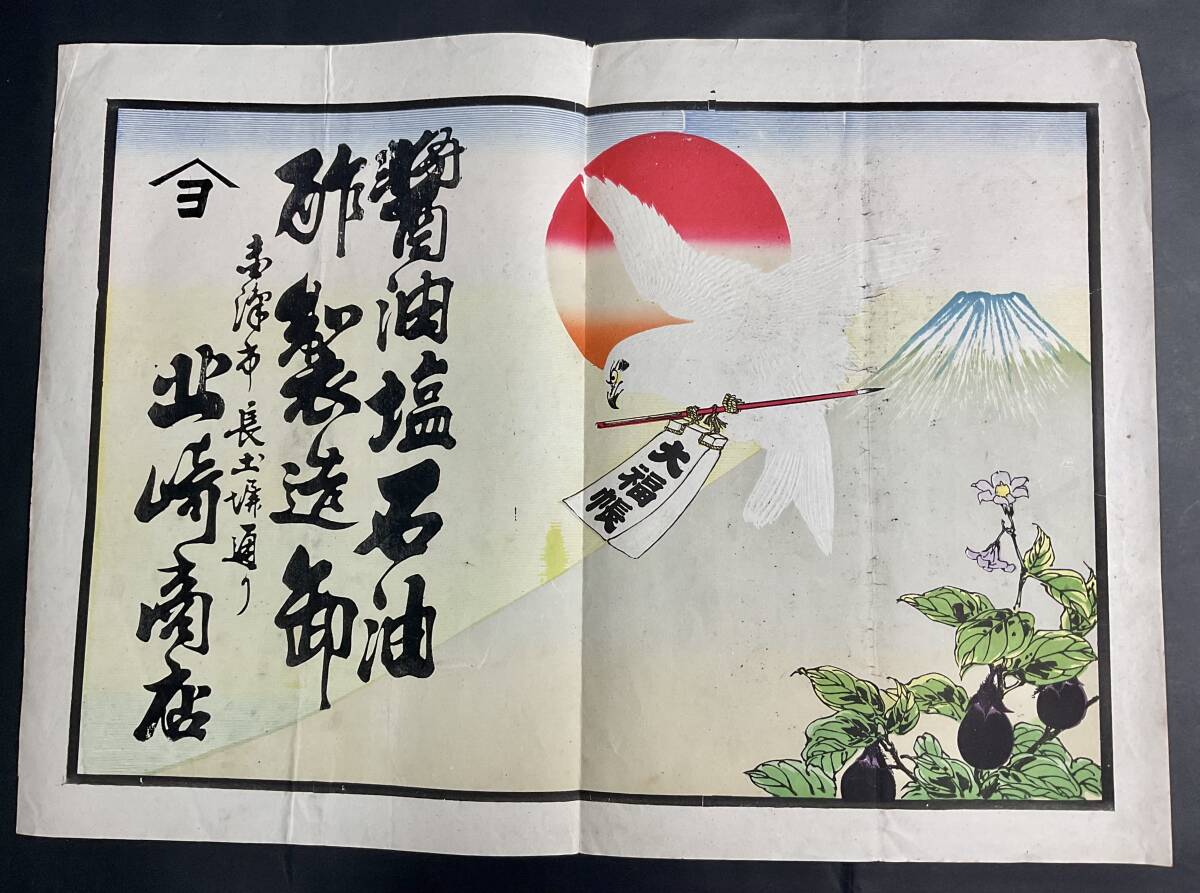 醬油塩石油
酢製造卸
ヨ
金澤市長土塀通り
北崎商店
大福帳